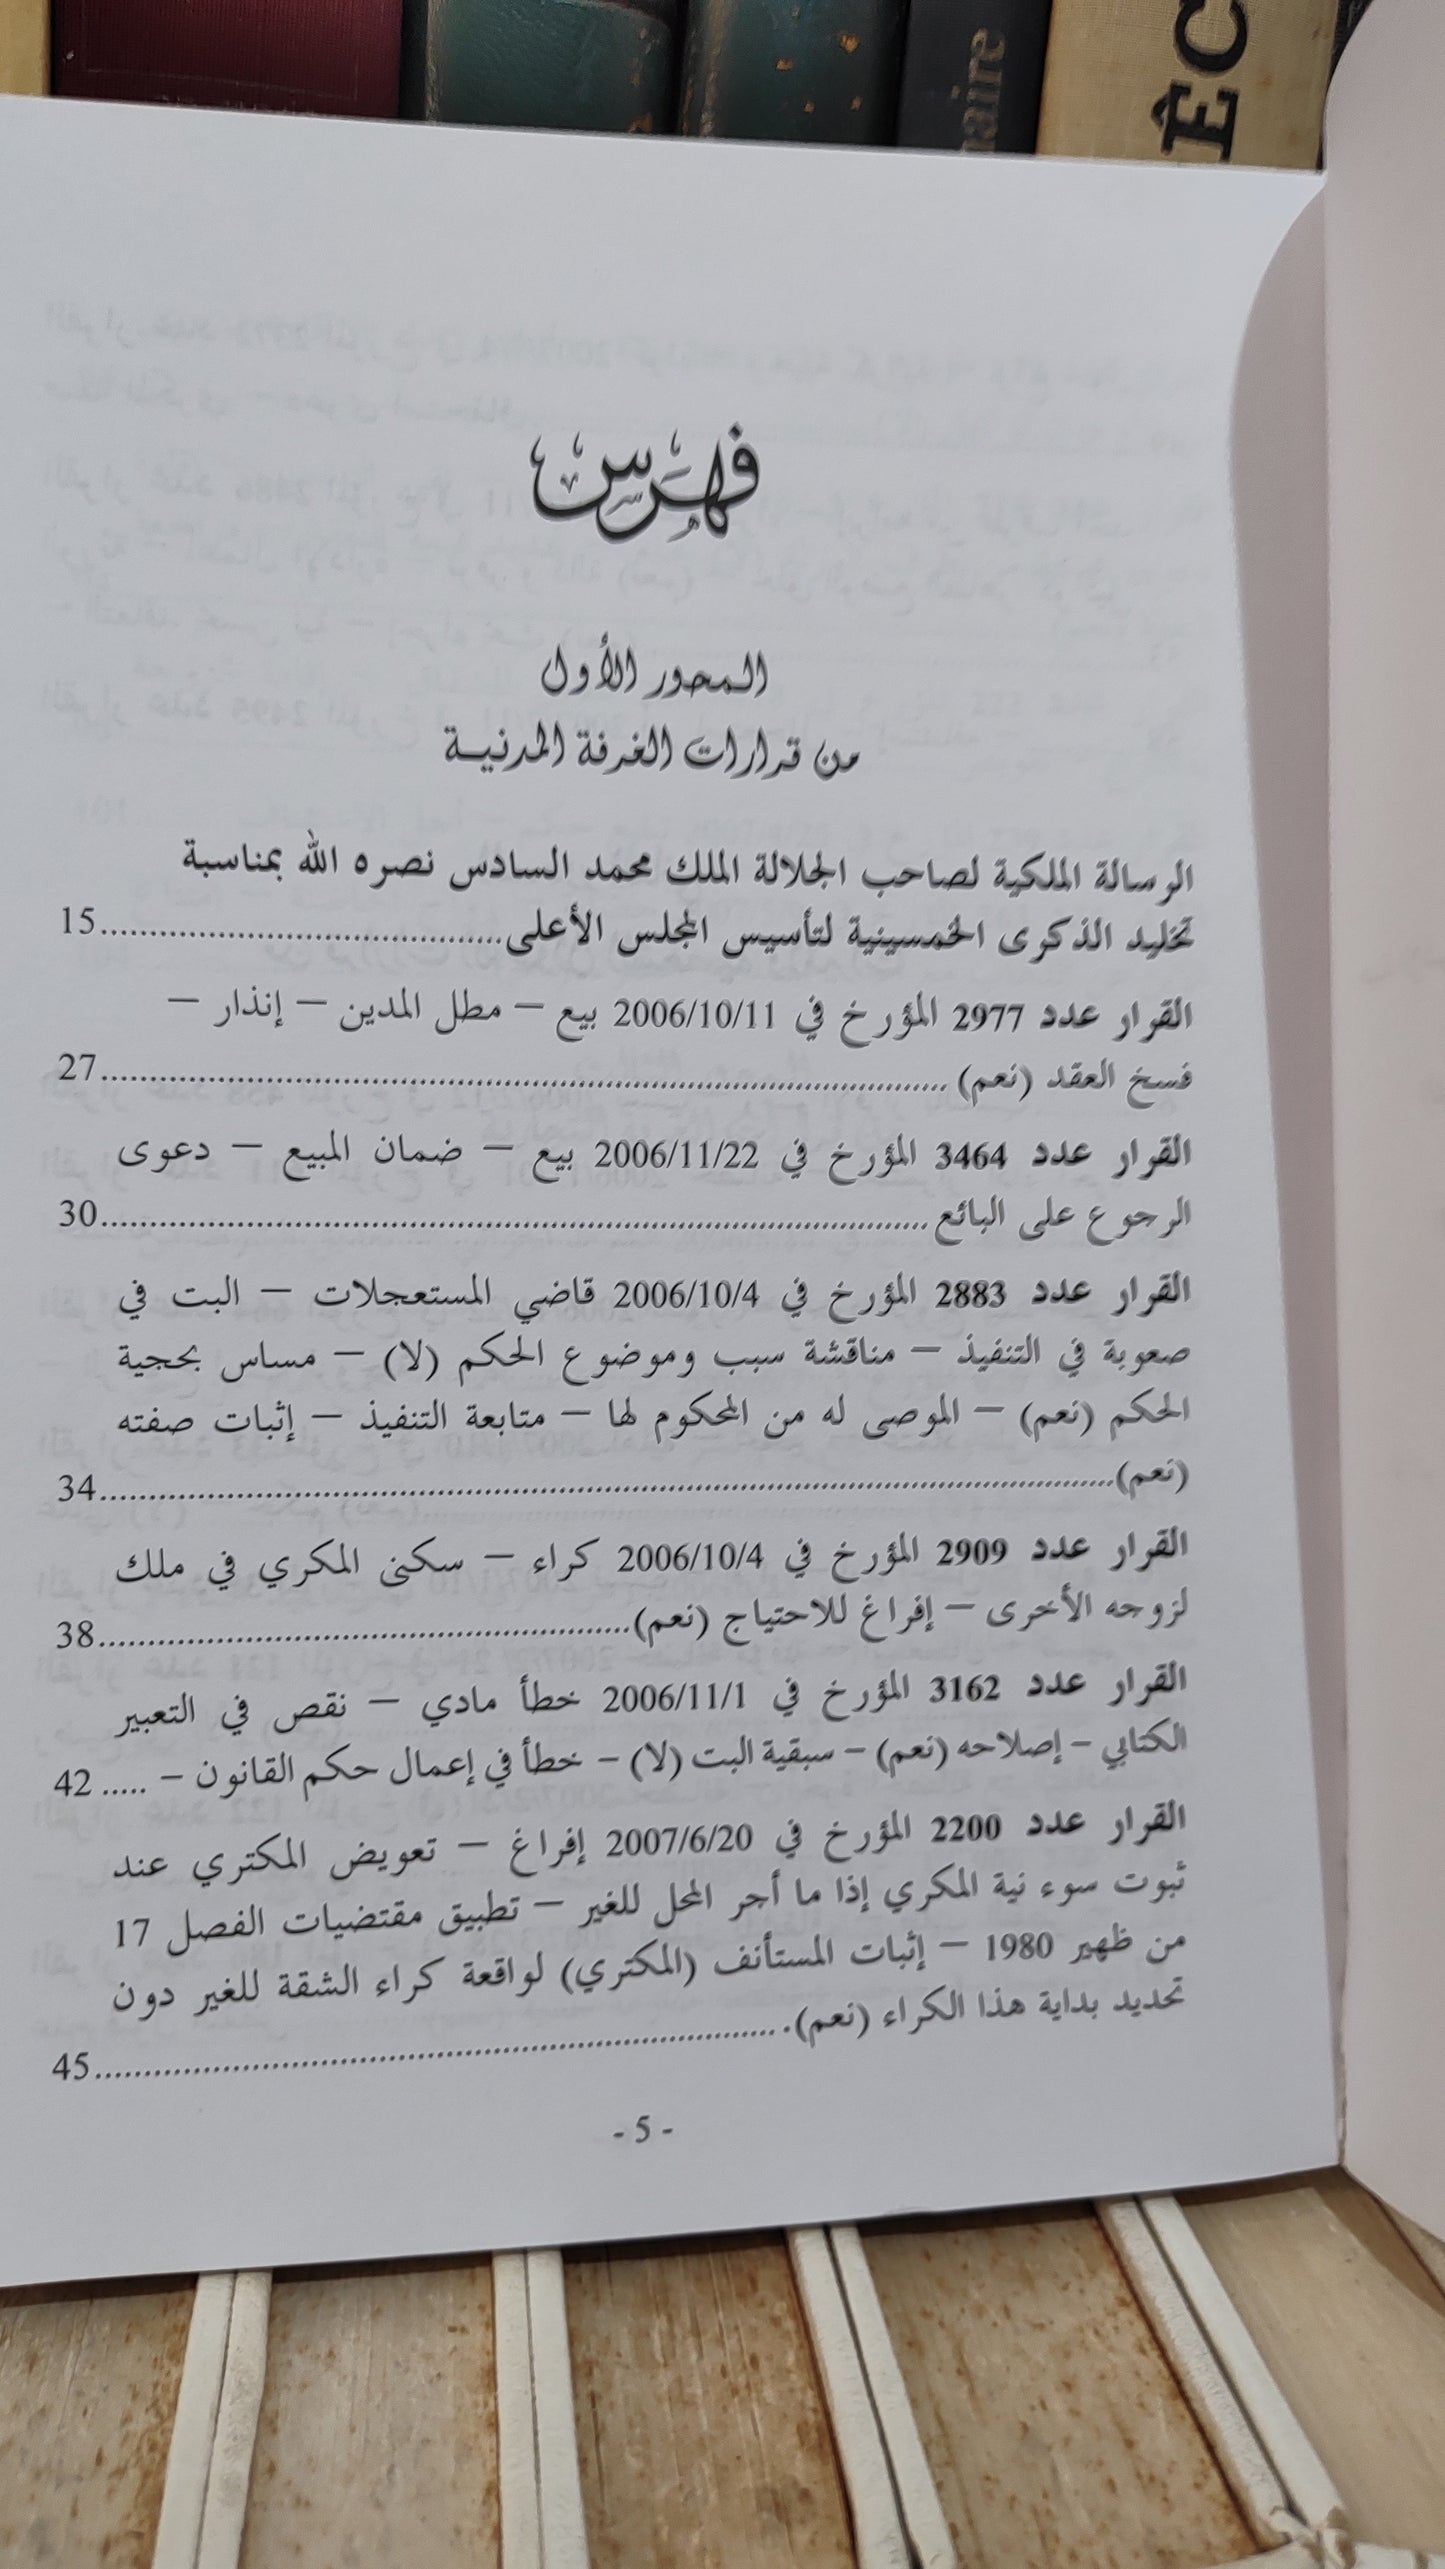 naire
ÊC
فهرس
المحور الأول
من قرارات الغرفة المدنية
الرسالة الملكية لصاحب الجلالة الملك محمد السادس نصره الله بمناسبة
تخليد الذكرى الخمسينية لتأسيس المجلس الأعلى........................................15
القرار عدد 2977 المؤرخ في 2006/10/11 بيع – مطل المدين – إنذار –
فسخ العقد (نعم) ........................................27
القرار عدد 3464 المؤرخ في 2006/11/22 بيع – ضمان المبيع – دعوى
الرجوع على البائع ........................................30
القرار عدد 2883 المؤرخ في 2006/10/4 قاضي المستعجلات – البت في
صعوبة في التنفيذ – مناقشة سبب وموضوع الحكم (لا) – مساس بحجية
الحكم (نعم) – الموصى له من المحكوم لها – متابعة التنفيذ – إثبات صفته
(نعم)........................................34
القرار عدد 2909 المؤرخ في 2006/10/4 كراء – سكنى المكري في ملك
لزوجه الأخرى – إفراغ للاحتياج (نعم)........................................38
القرار عدد 3162 المؤرخ في 2006/11/1 خطأ مادي – نقص في التعبير
الكتابي – إصلاحه (نعم) – سبقية البت (لا) – خطأ في إعمال حكم القانون – ..... 42
القرار عدد 2200 المؤرخ في 2007/6/20 إفراغ – تعويض المكتري عند
ثبوت سوء نية المكري إذا ما أجر المحل للغير – تطبيق مقتضيات الفصل 17
من ظهير 1980 – إثبات المستأنف (المكتري) لواقعة كراء الشقة للغير دون
تحديد بداية هذا الكراء (نعم). ........................................45
- 5 -